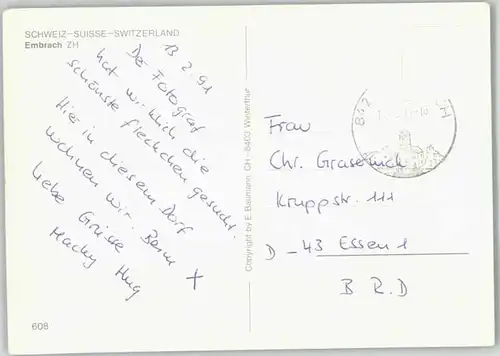 SCHWEIZ–SUISSE–SWITZERLAND
Embrach ZH
13. 2. 91
Der Fotograf
hat wirklich die
schönste fleckchen gesucht.
Hier in diesem Dorf
wohnen wir.
liebe Grüsse
608
Copyright by E. Baumann, CH-8403 Winterthur
Frau
Chr.
Kruppstr. 111
D – 43 Essen 1
B R. D